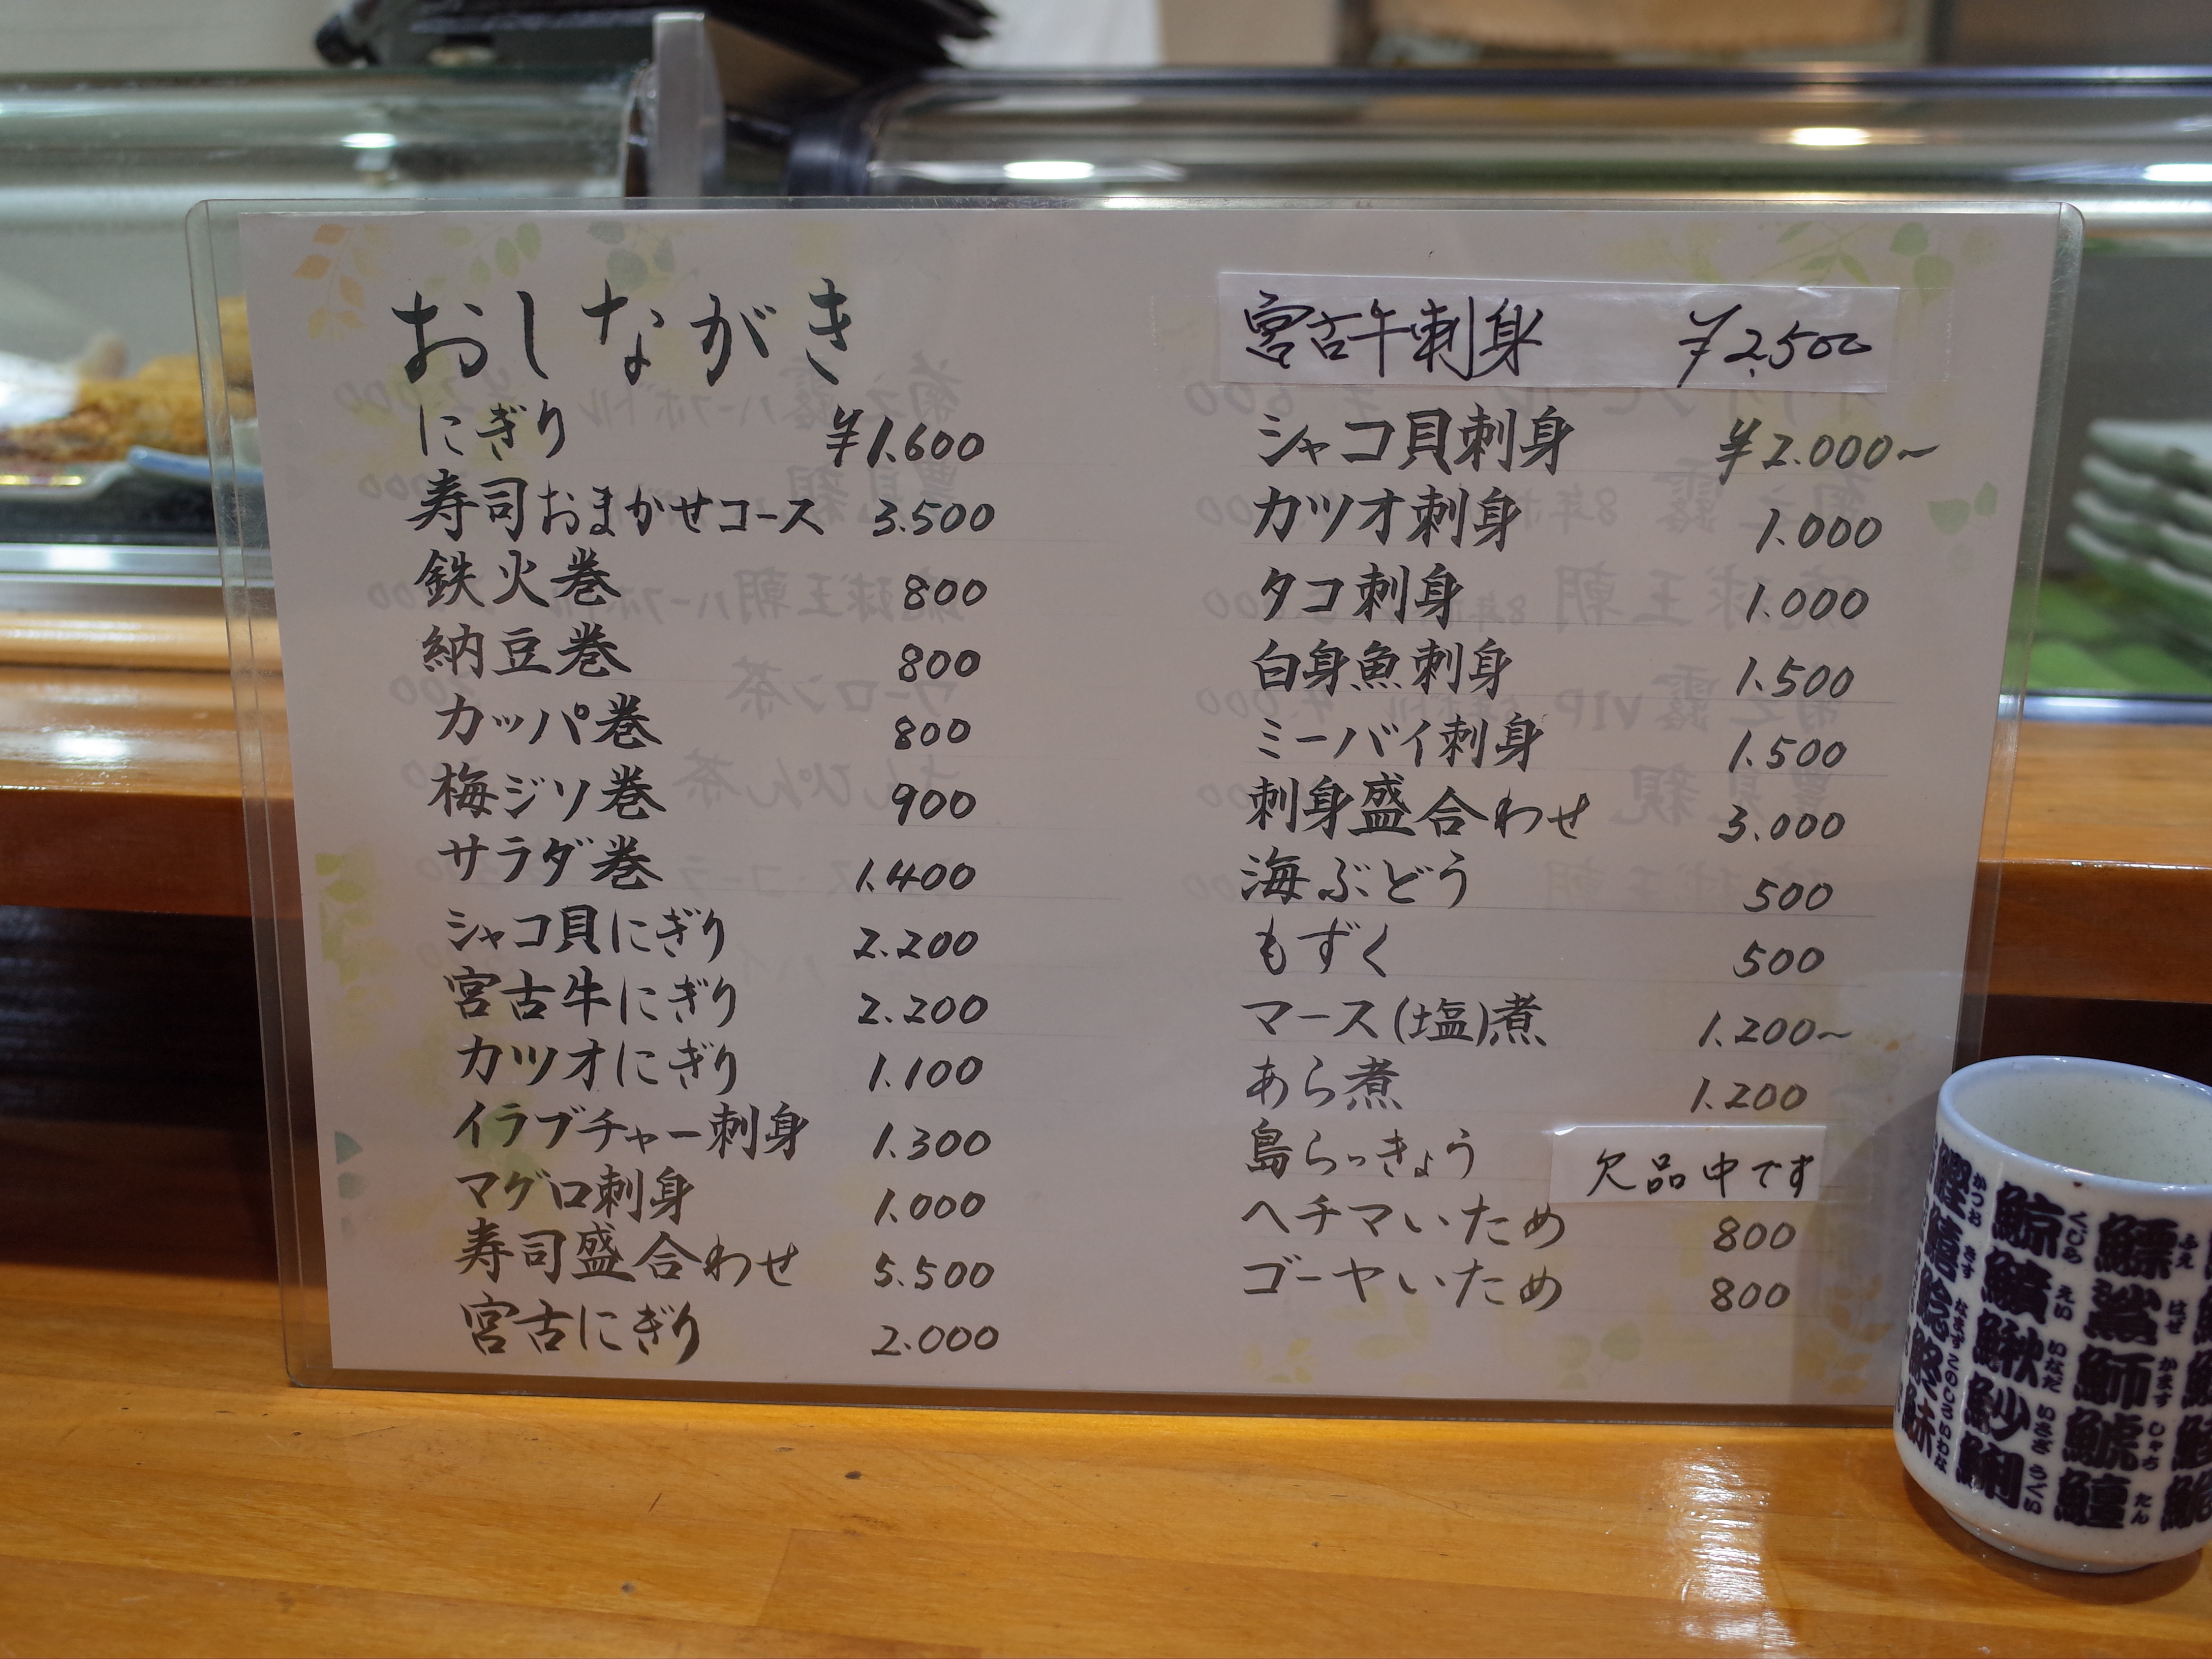 おしながき
にぎり ¥1.600
寿司おまかせコース 3.500
鉄火巻 800
納豆巻 800
カッパ巻 800
梅ジソ巻 900
サラダ巻 1.400
シャコ貝にぎり 2.200
宮古牛にぎり 2.200
カツオにぎり 1.100
イラブチャー刺身 1.300
マグロ刺身 1.000
寿司盛合わせ 5.500
宮古にぎり 2.000
宮古牛刺身 ¥2,500
シャコ貝刺身 ¥2.000～
カツオ刺身 1.000
タコ刺身 1.000
白身魚刺身 1.500
ミーバイ刺身 1.500
刺身盛合わせ 3.000
海ぶどう 500
もずく 500
マース(塩)煮 1.200～
あら煮 1.200
島らっきょう 欠品中です
ヘチマいため 800
ゴーヤいため 800
鯨 くじら
鱝 えい
鰍 いなだ
魦 いさぎ
鯏 うぐい
鰾 ふえ
鯊 はぜ
鰤 かます
鯱 しゃち
鱣 たん